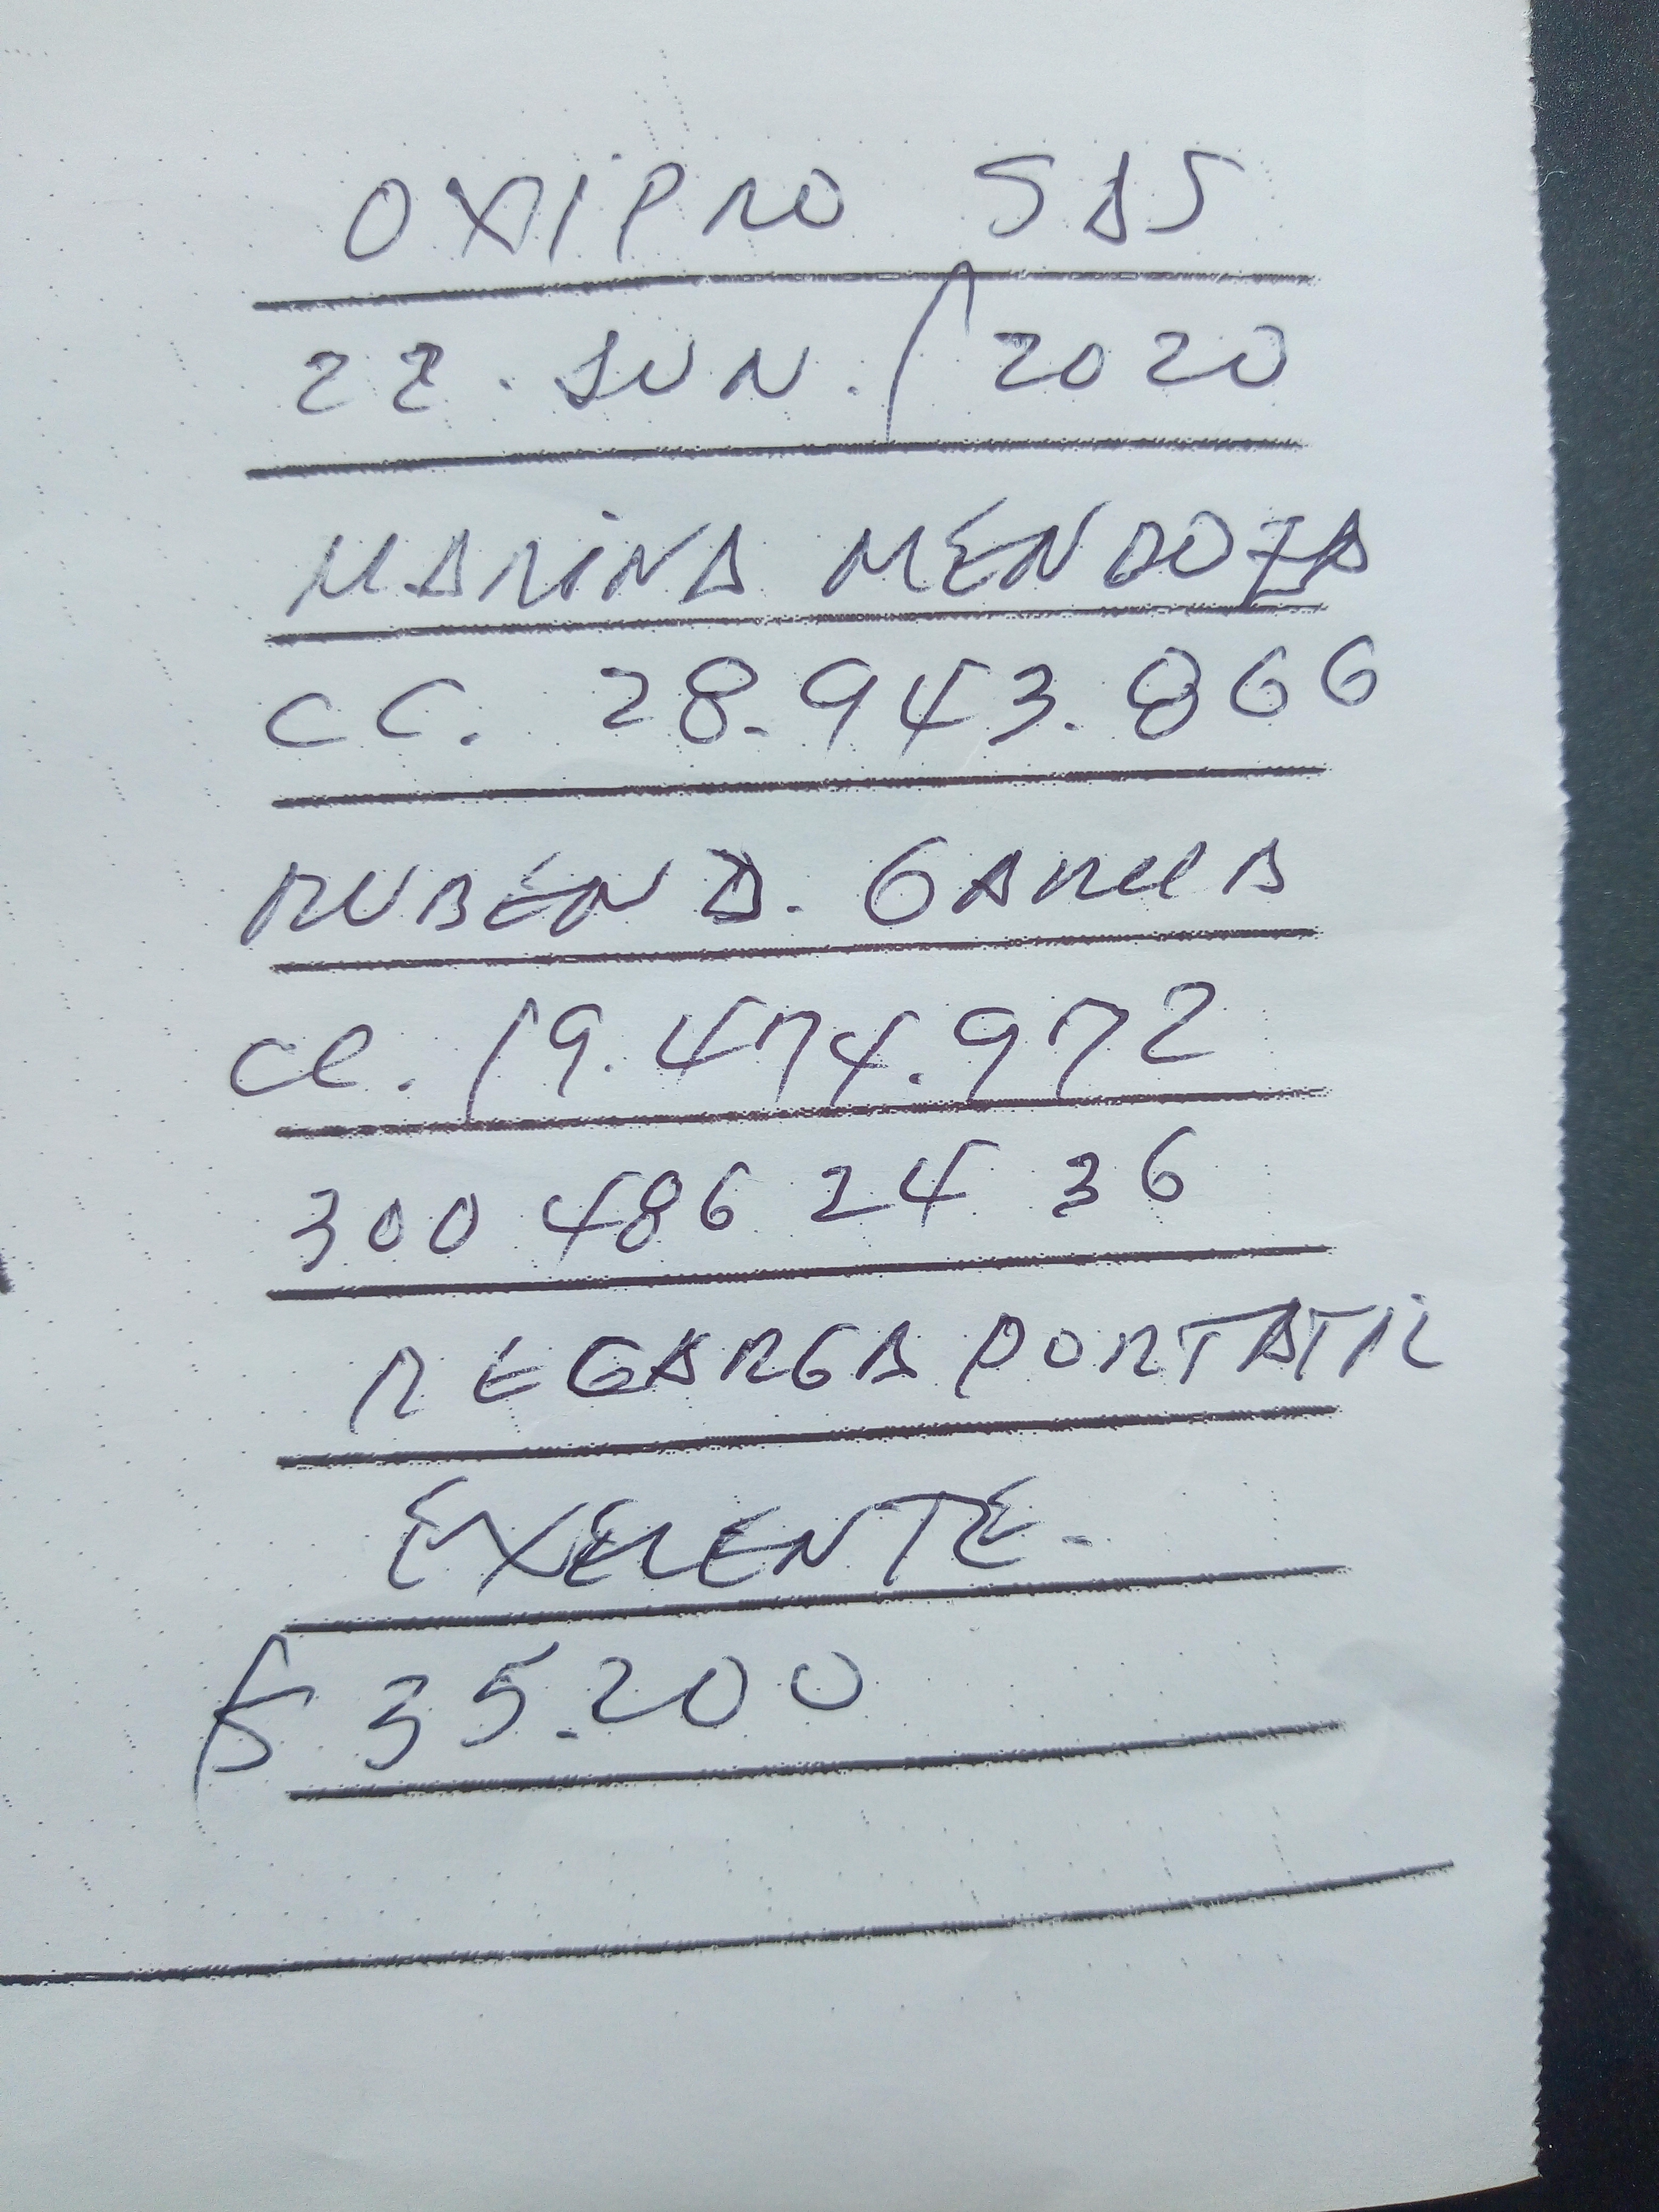 OXIPRO SAS
22. JUN. / 2020
MARINA MENDOZA
CC. 28.943.866
RUBEN D. GARCIA
CC. 19.474.972
300 486 24 36
REGARGA PORTATIL
EXELENTE.
$ 35.200